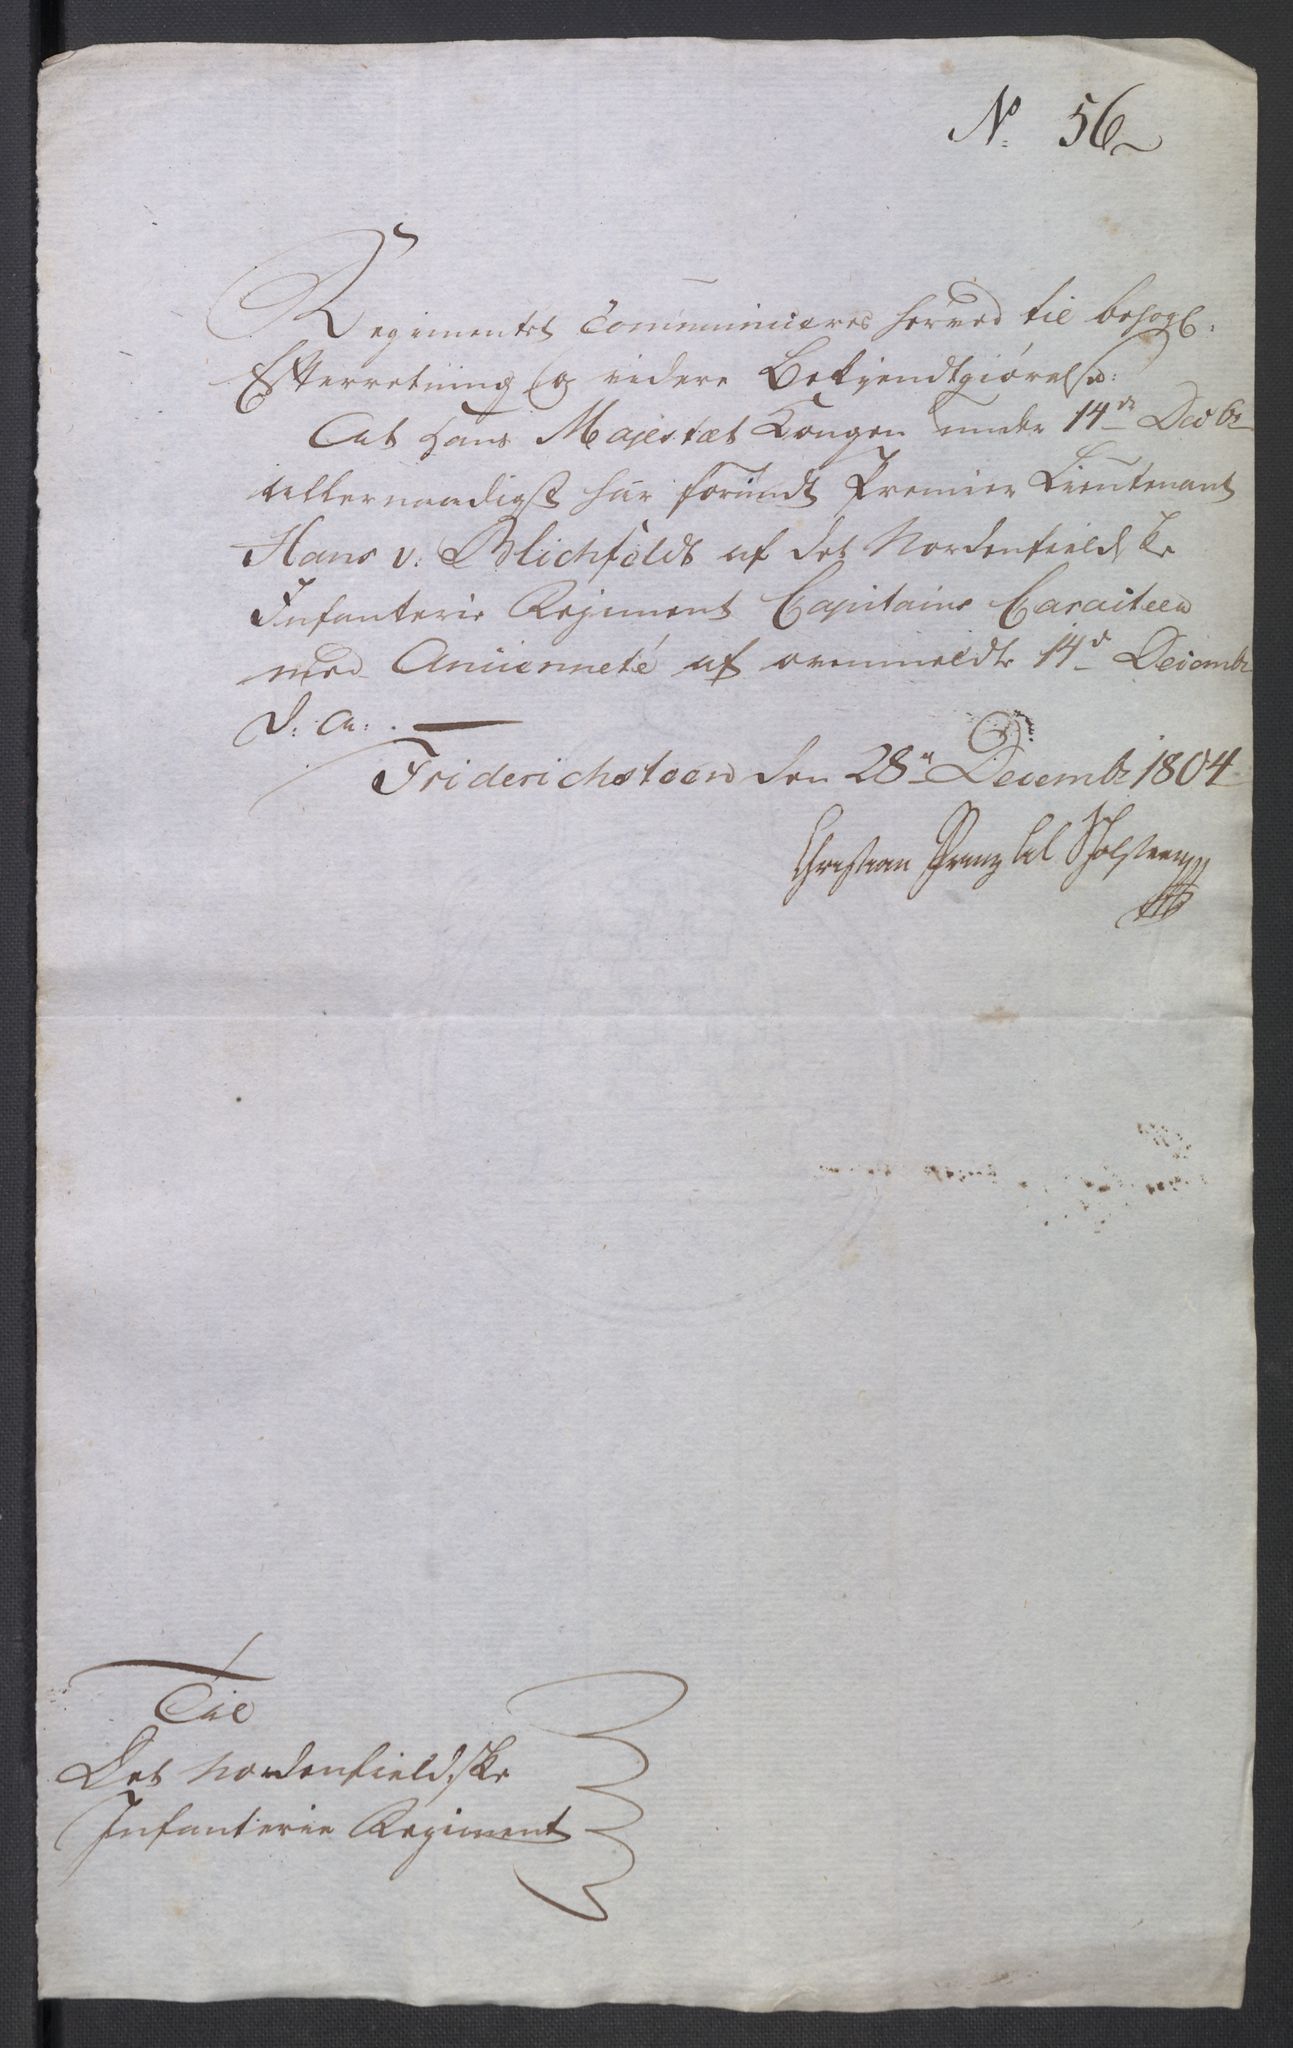 No 56
Regimentet Communiceres herved til behøgl:
Efterretning og videre Bekjendtgiörelse:
At Hans Majestæt Kongen under 14de Decbr
allernaadigst har forundt Premier Lieutenant
Hans v. Blichfeldt af det Nordenfieldske
Infanterie Regiment Capitains Caracteer
med Ancienneté af ovenmeldte 14d Decembr
d: a:.
Friderichsteen den 28n Decembr 1804
Christian Prinz til Holsteen
Til
Det Nordenfieldske
Infanterie Regiment